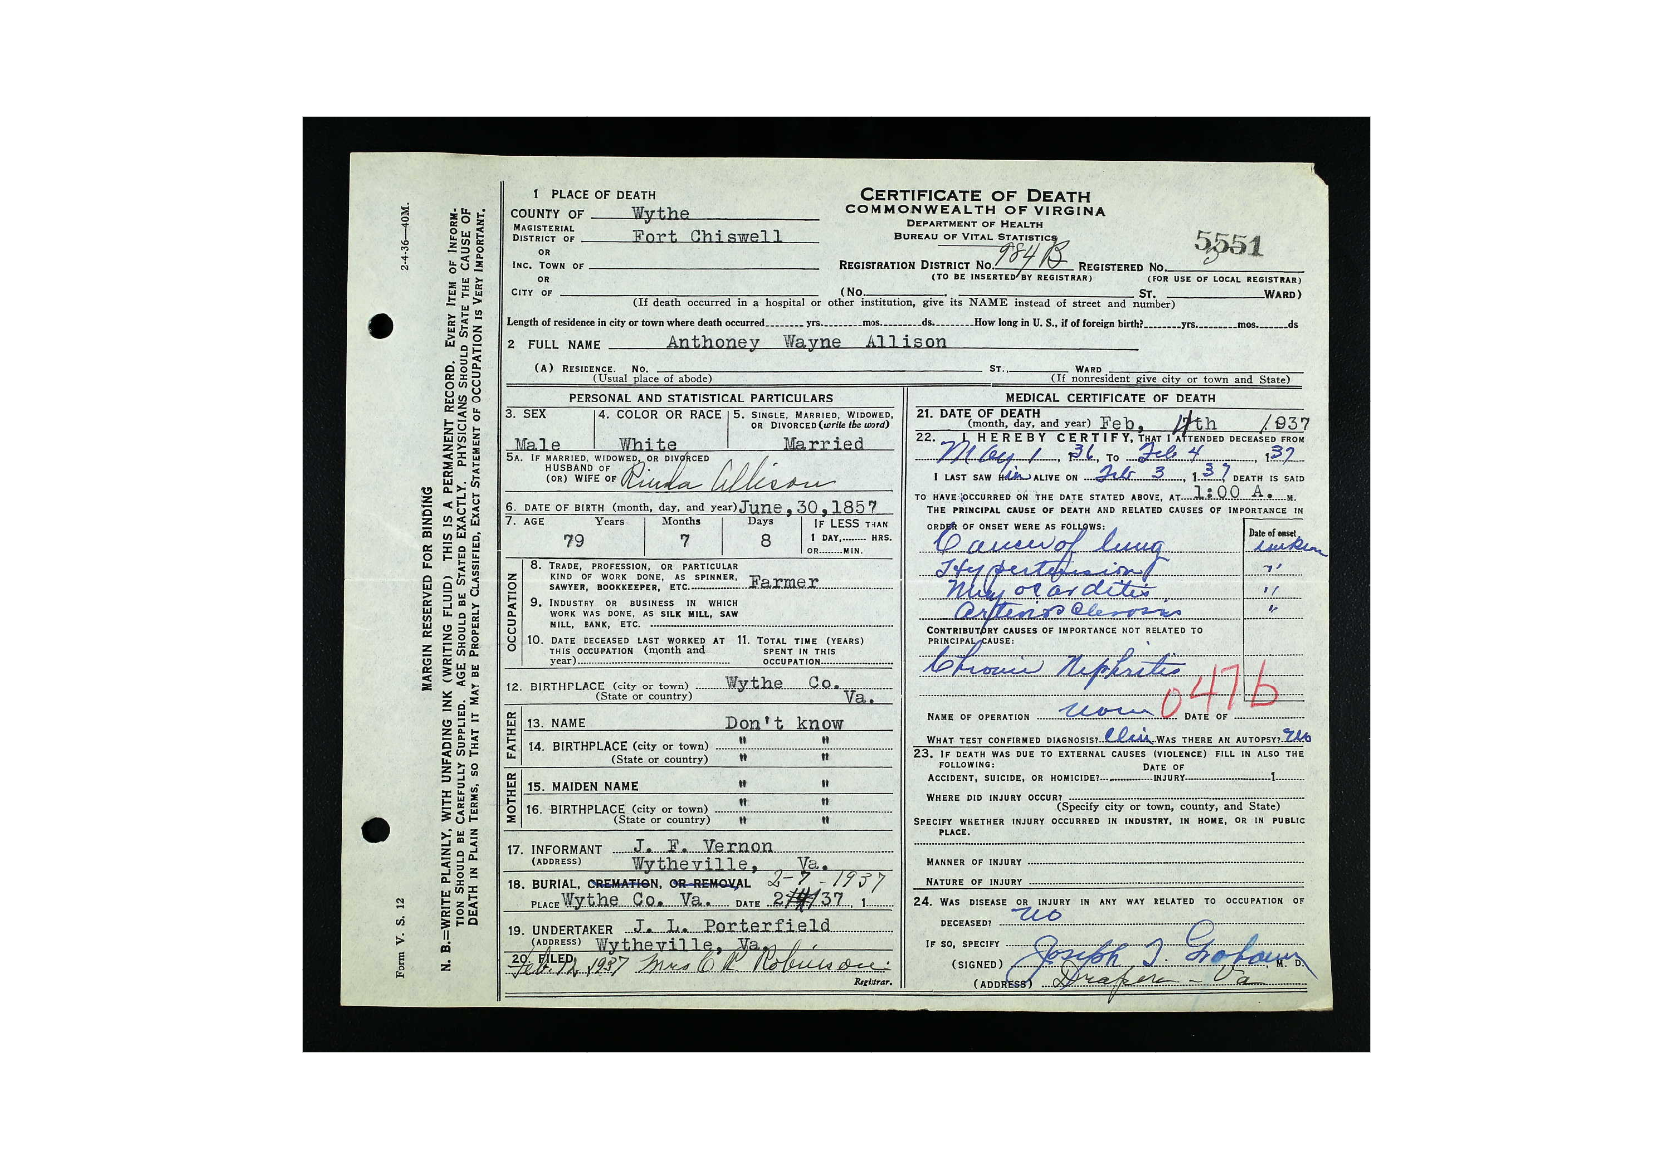 2-4-36—40M.
MARGIN RESERVED FOR BINDING
N. B.—WRITE PLAINLY, WITH UNFADING INK (WRITING FLUID) THIS IS A PERMANENT RECORD. EVERY ITEM OF INFORM-
TION SHOULD BE CAREFULLY SUPPLIED. AGE SHOULD BE STATED EXACTLY. PHYSICIANS SHOULD STATE THE CAUSE OF
DEATH IN PLAIN TERMS, SO THAT IT MAY BE PROPERLY CLASSIFIED. EXACT STATEMENT OF OCCUPATION IS VERY IMPORTANT.
Form V. S. 12
CERTIFICATE OF DEATH
COMMONWEALTH OF VIRGINA
DEPARTMENT OF HEALTH
BUREAU OF VITAL STATISTICS
5551
1 PLACE OF DEATH
COUNTY OF Wythe
MAGISTERIAL
DISTRICT OF Fort Chiswell
OR
INC. TOWN OF
OR
CITY OF
REGISTRATION DISTRICT No. 984 B REGISTERED No. 3
(TO BE INSERTED BY REGISTRAR) (FOR USE OF LOCAL REGISTRAR)
(No. ST. WARD)
(If death occurred in a hospital or other institution, give its NAME instead of street and number)
Length of residence in city or town where death occurred yrs. mos. ds. How long in U. S., if of foreign birth? yrs. mos. ds
2 FULL NAME Anthoney Wayne Allison
(A) RESIDENCE. No. ST., WARD
(Usual place of abode) (If nonresident give city or town and State)
PERSONAL AND STATISTICAL PARTICULARS
3. SEX 4. COLOR OR RACE 5. SINGLE, MARRIED, WIDOWED,
OR DIVORCED (write the word)
Male White Married
5A. IF MARRIED, WIDOWED, OR DIVORCED
HUSBAND OF
(OR) WIFE OF Rinda Allison
6. DATE OF BIRTH (month, day, and year) June,30,1857
7. AGE Years Months Days IF LESS THAN
1 DAY, HRS.
OR MIN.
79 7 8
OCCUPATION
8. TRADE, PROFESSION, OR PARTICULAR
KIND OF WORK DONE, AS SPINNER,
SAWYER, BOOKKEEPER, ETC. Farmer
9. INDUSTRY OR BUSINESS IN WHICH
WORK WAS DONE, AS SILK MILL, SAW
MILL, BANK, ETC.
10. DATE DECEASED LAST WORKED AT 11. TOTAL TIME (YEARS)
THIS OCCUPATION (month and SPENT IN THIS
year) OCCUPATION
12. BIRTHPLACE (city or town) Wythe Co.
(State or country) Va.
FATHER
13. NAME Don't know
14. BIRTHPLACE (city or town) " "
(State or country) " "
MOTHER
15. MAIDEN NAME " "
16. BIRTHPLACE (city or town) " "
(State or country) " "
17. INFORMANT J. F. Vernon
(ADDRESS) Wytheville, Va.
18. BURIAL, CREMATION, OR REMOVAL 2-7-1937
PLACE Wythe Co. Va. DATE 2/ /37, 1
19. UNDERTAKER J. L. Porterfield
(ADDRESS) Wytheville, Va.
20. FILED
Feb. 12, 1937 Mrs C R Robinson
Registrar.
MEDICAL CERTIFICATE OF DEATH
21. DATE OF DEATH
(month, day, and year) Feb, th 1937
22. I HEREBY CERTIFY, THAT I ATTENDED DECEASED FROM
May 1, 136, TO Feb 4, 137
I LAST SAW Him ALIVE ON Feb 3, 137 DEATH IS SAID
TO HAVE OCCURRED ON THE DATE STATED ABOVE, AT 1:00 A. M.
THE PRINCIPAL CAUSE OF DEATH AND RELATED CAUSES OF IMPORTANCE IN
ORDER OF ONSET WERE AS FOLLOWS:
Date of onset
Cancer of lung
Hypertension "
Myocarditis "
Arteriosclerosis "
CONTRIBUTORY CAUSES OF IMPORTANCE NOT RELATED TO
PRINCIPAL CAUSE:
Chronic Nephritis
047b
NAME OF OPERATION none DATE OF
WHAT TEST CONFIRMED DIAGNOSIS? Clin WAS THERE AN AUTOPSY? No
23. IF DEATH WAS DUE TO EXTERNAL CAUSES (VIOLENCE) FILL IN ALSO THE
FOLLOWING: DATE OF
ACCIDENT, SUICIDE, OR HOMICIDE? INJURY 1
WHERE DID INJURY OCCUR?
(Specify city or town, county, and State)
SPECIFY WHETHER INJURY OCCURRED IN INDUSTRY, IN HOME, OR IN PUBLIC
PLACE.
MANNER OF INJURY
NATURE OF INJURY
24. WAS DISEASE OR INJURY IN ANY WAY RELATED TO OCCUPATION OF
DECEASED? No
IF SO, SPECIFY
(SIGNED) Joseph T. Graham, M. D.
(ADDRESS) Draper Va